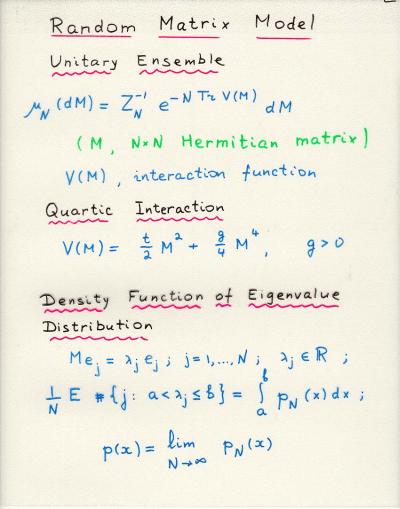 Random Matrix Model
Unitary Ensemble
μ_N (dM) = Z_N^{-1} e^{-N Tr V(M)} dM
(M, N×N Hermitian matrix)
V(M), interaction function
Quartic Interaction
V(M) = t/2 M² + g/4 M⁴, g > 0
Density Function of Eigenvalue
Distribution
Me_j = λ_j e_j ; j = 1,..., N ; λ_j ∈ ℝ ;
1/N E #{j: a < λ_j ≤ b} = ∫_a^b p_N (x) dx ;
p(x) = lim_{N→∞} p_N (x)